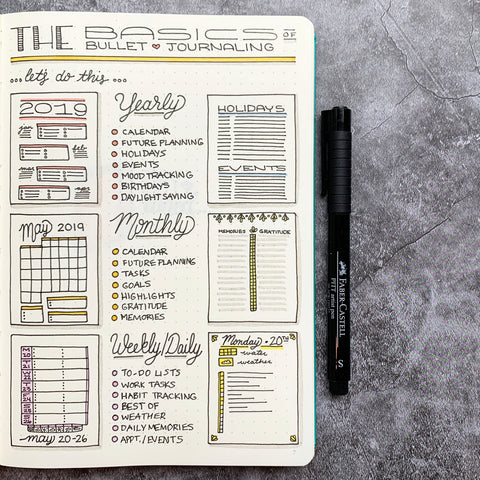 THE BASICS OF
BULLET ♥ JOURNALING
...let's do this...
2019
jan
feb
mar
Yearly
• CALENDAR
• FUTURE PLANNING
• HOLIDAYS
• EVENTS
• MOOD TRACKING
• BIRTHDAYS
• DAYLIGHT SAVING
HOLIDAYS
EVENTS
May 2019
Monthly
• CALENDAR
• FUTURE PLANNING
• TASKS
• GOALS
• HIGHLIGHTS
• GRATITUDE
• MEMORIES
MEMORIES
GRATITUDE
May 20-26
Weekly/Daily
• TO-DO LISTS
• WORK TASKS
• HABIT TRACKING
• BEST OF
• WEATHER
• DAILY MEMORIES
• APPT./EVENTS
Monday • 20TH
water
weather
FABER-CASTELL
PITT artist pen
S